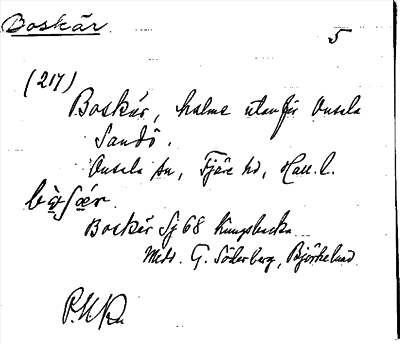 Boskär.
5
(217)
Boskär, holme utanför Onsala
Sandö.
Onsala sn, Fjäre hd, Hall. l.
Boskär Sj 68 Kungsbacka
Medd. G. Söderberg, Björkelund.